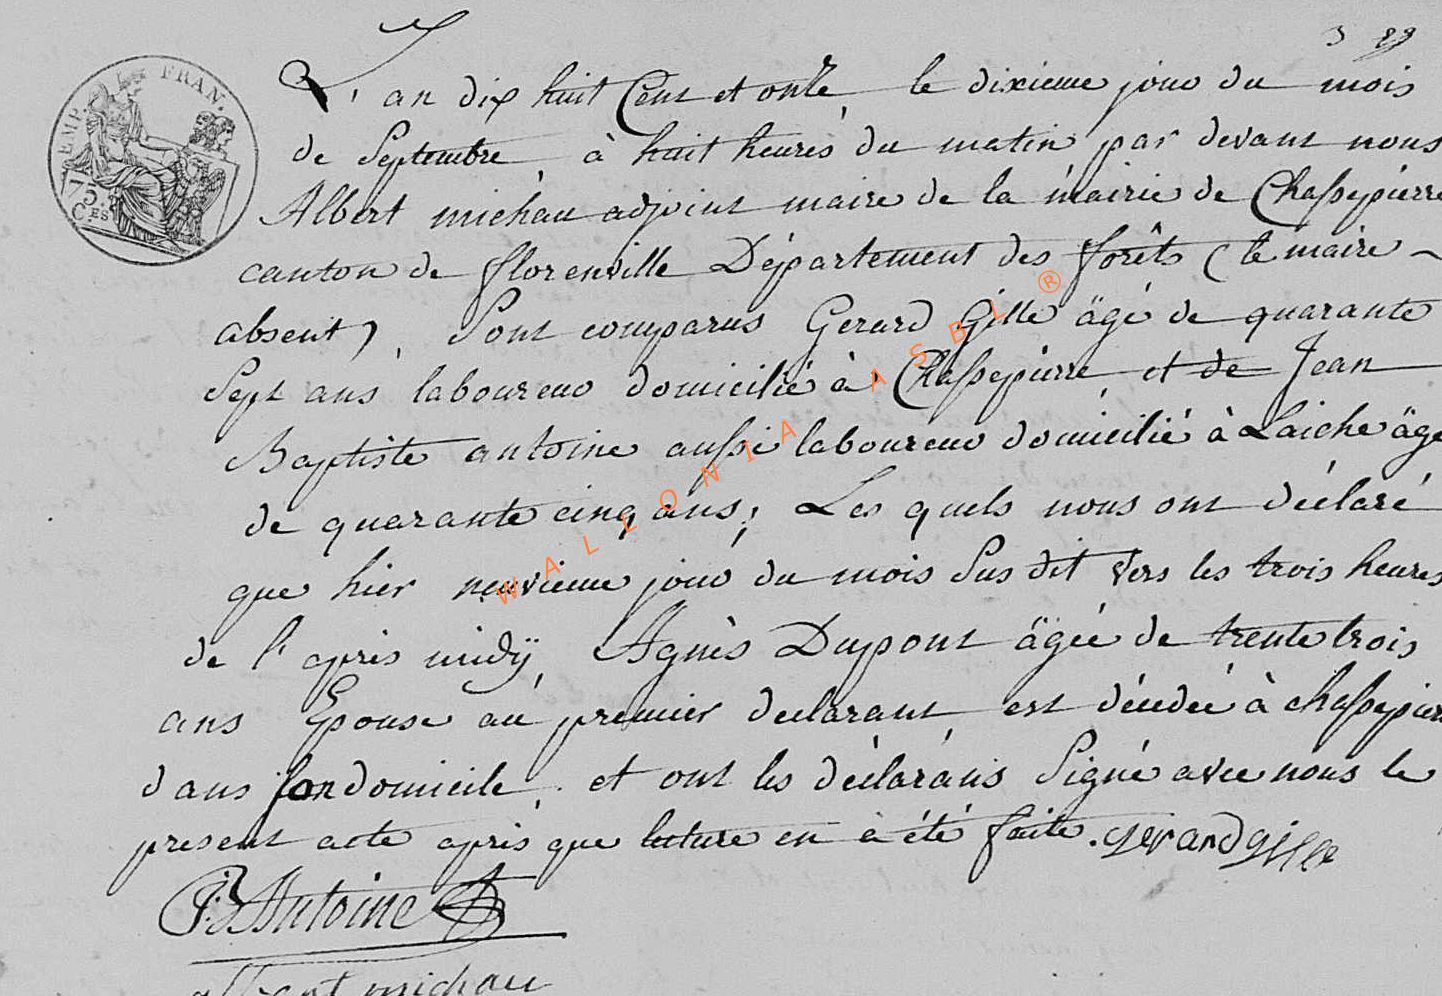 L'an dix huit Cent et onze le dixieme jour du mois
de Septembre à huit heures du matin par devant nous
Albert michau adjoint maire de la mairie de Chassepierre
canton de florenville Département des forêts (le maire
absent), Sont comparus Gerard Gille âgé de quarante
Sept ans laboureur domicilié à Chassepierre et de Jean
Baptiste antoine aussi laboureur domicilié à Laiche âgé
de quarante cinq ans, Les quels nous ont déclaré
que hier neuvieme jour du mois Sus dit vers les trois heures
de l'après midÿ, Agnès Dupont âgée de trente trois
ans Epouse au premier declarant est décédée à chassepierre
dans son domicile, et ont les déclarans Signé avec nous le
present acte après que lecture en à été faite. gerard gille
JB Antoine
albert michau
EMP. FRAN.
75.
CES
WALLONIA ASBL ®